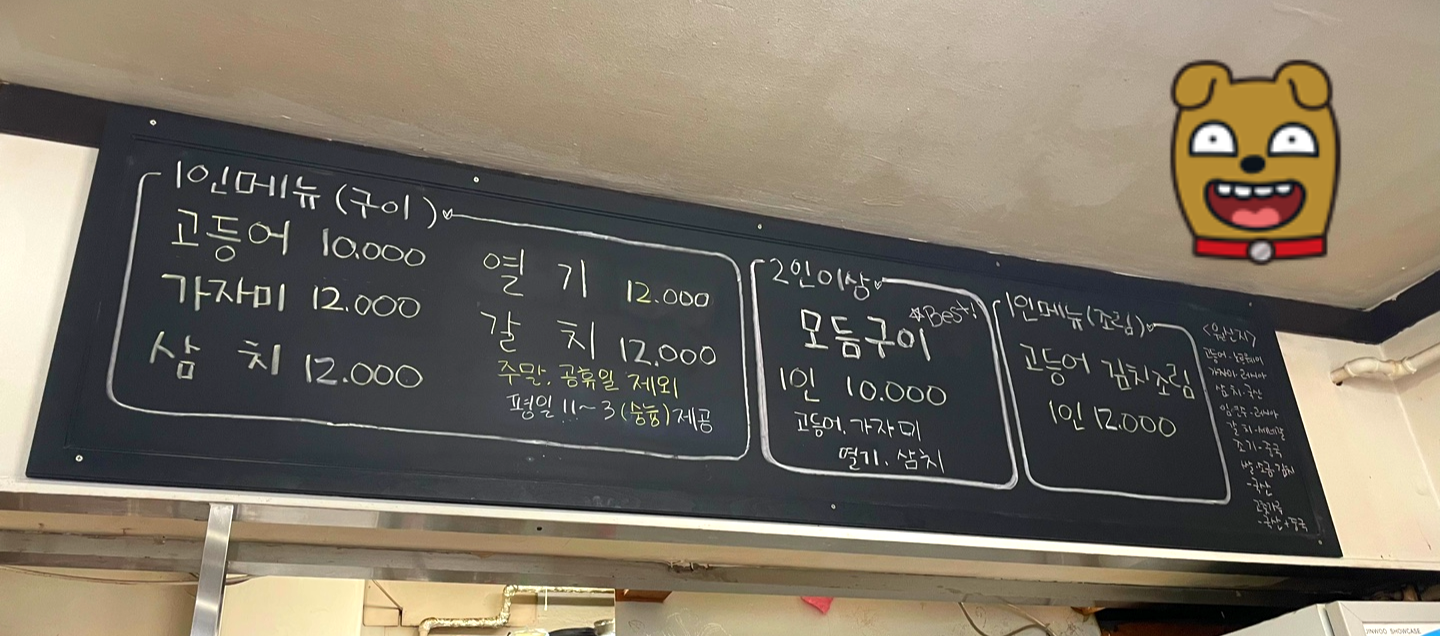 1인메뉴 (구이)
고등어 10.000
가자미 12.000
삼치 12.000
열기 12.000
갈치 12.000
주말, 공휴일 제외
평일 11~3 (숭늉) 제공
2인이상
☆Best!
모듬구이
1인 10.000
고등어, 가자미
열기, 삼치
1인메뉴 (조림)
고등어 김치조림
1인 12.000
<원산지>
고등어-노르웨이
가자미-러시아
삼치-국산
임연수-러시아
갈치-세네갈
조기-중국
쌀-국산
고춧가루
-국산+중국
JINWOO SHOWCASE